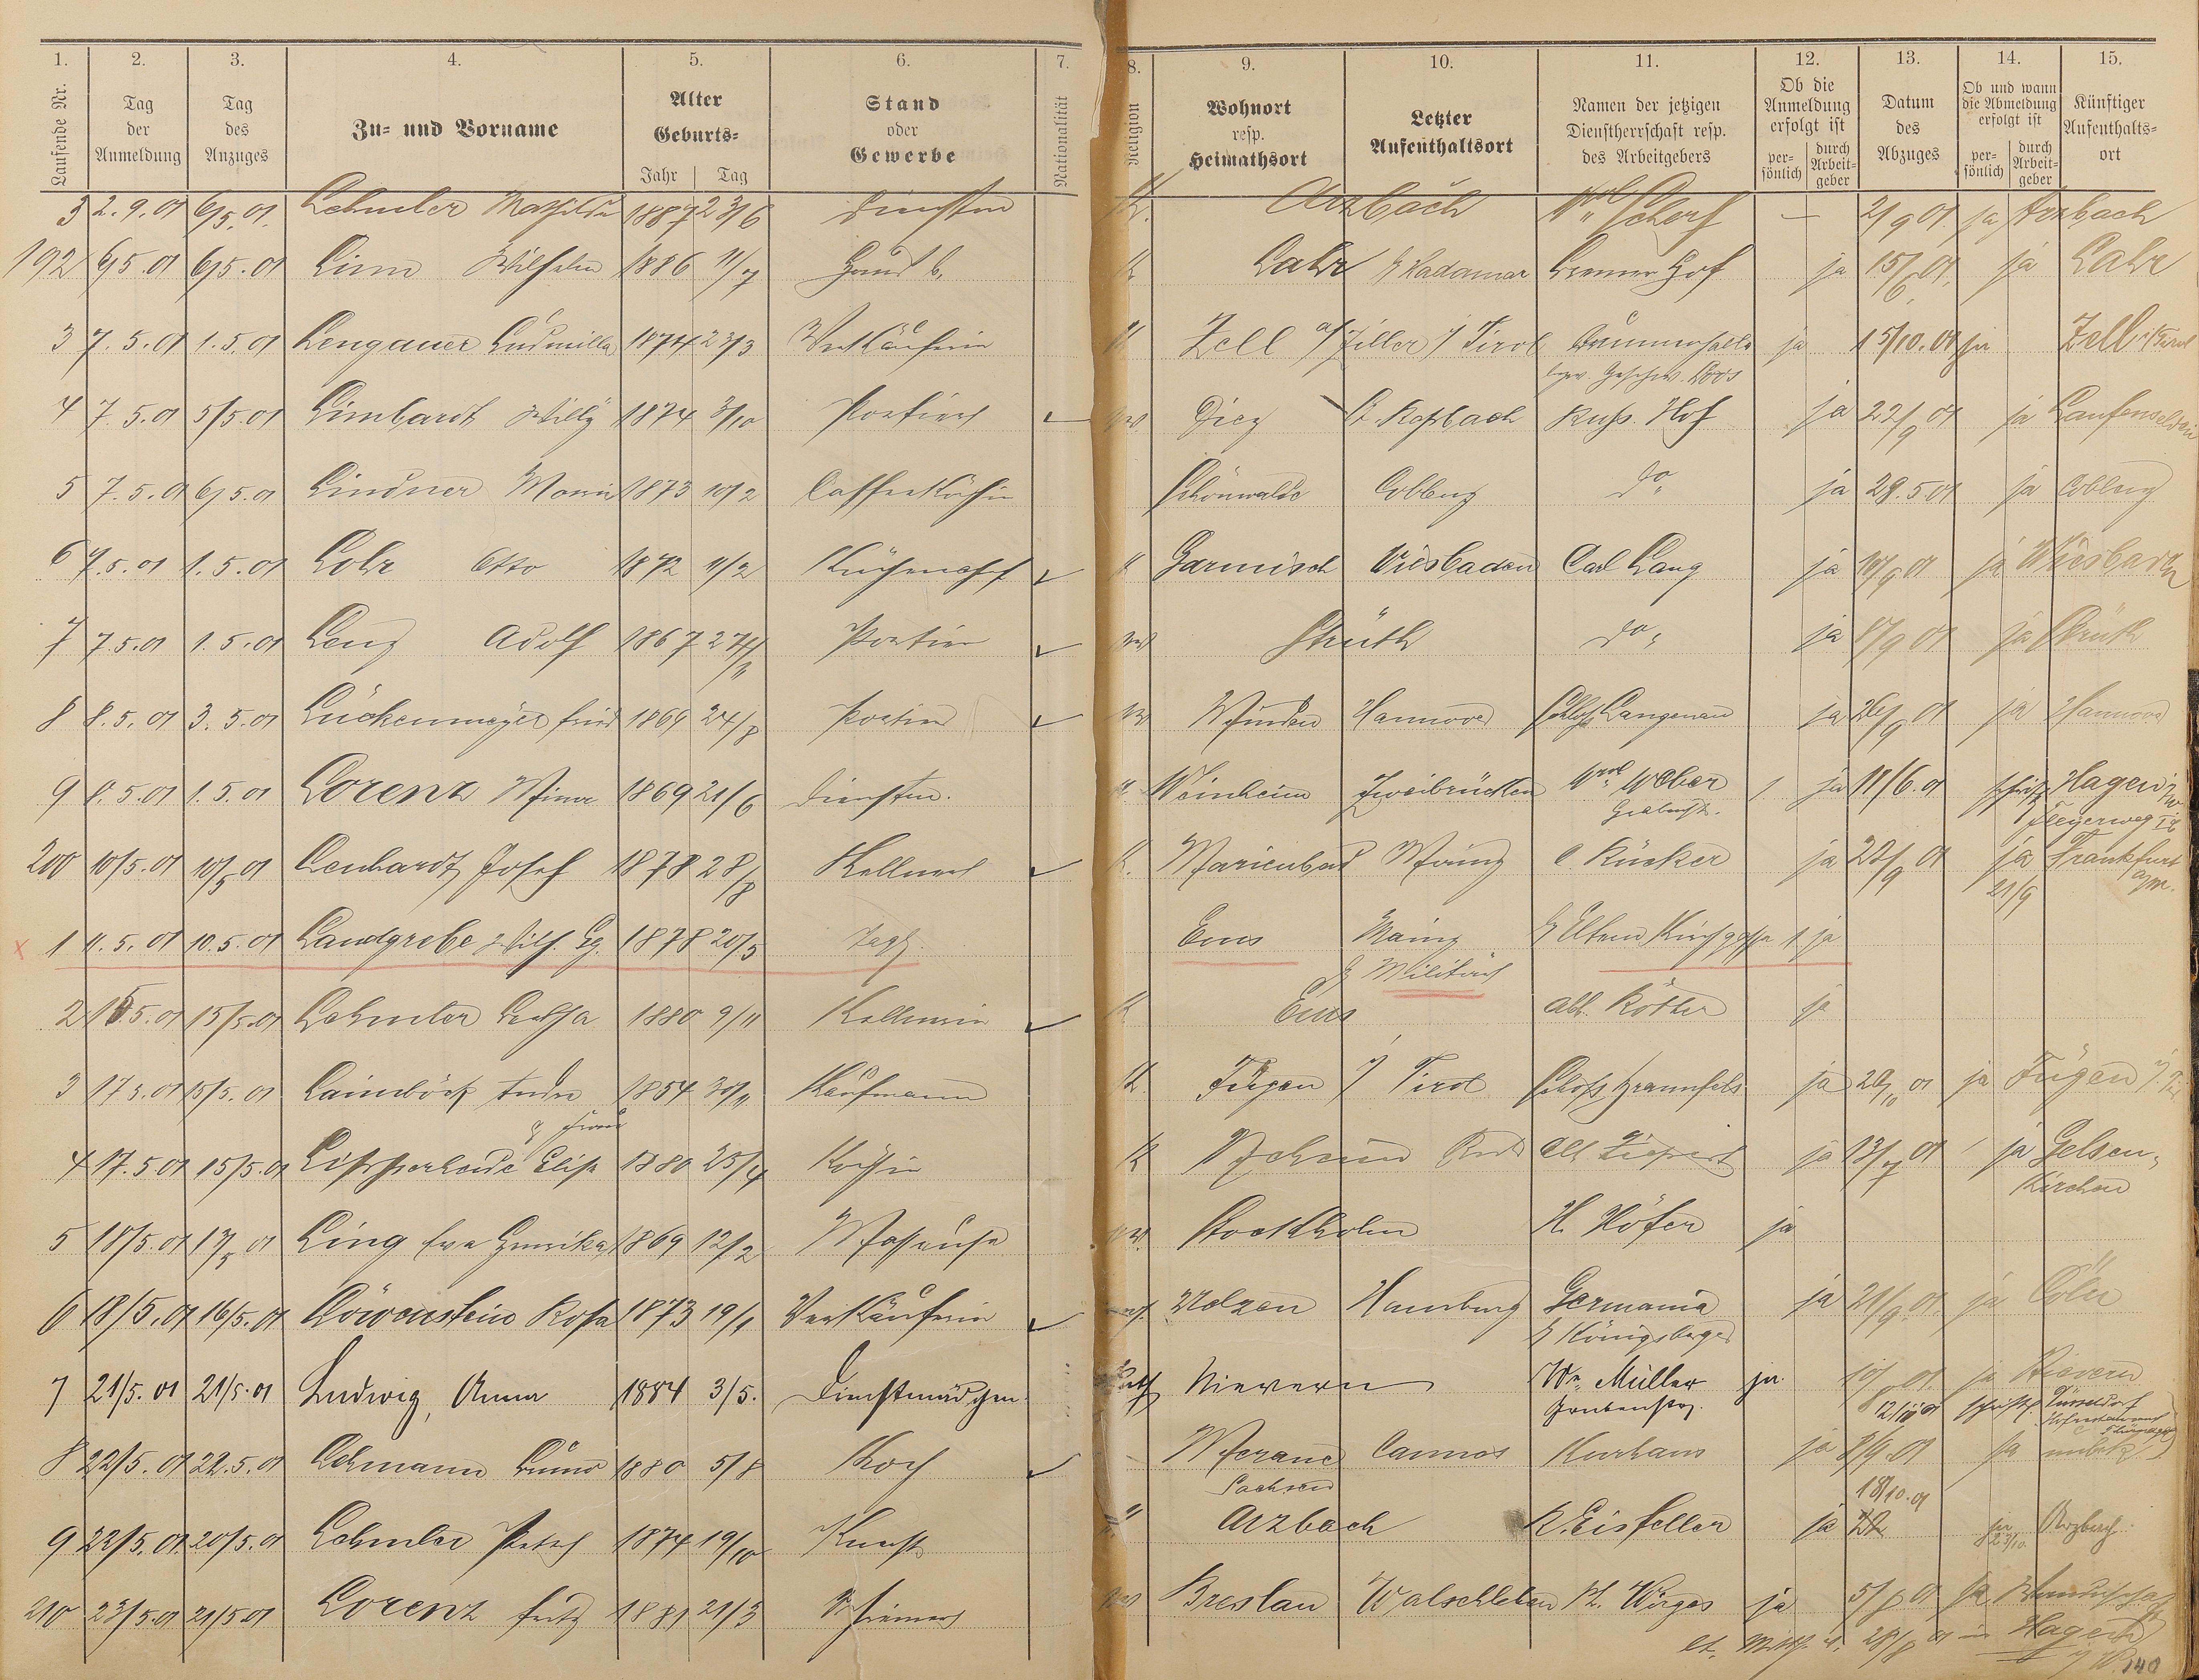 1. 2. 3. 4. 5. 6. 7. 8. 9. 10. 11. 12. 13. 14. 15.
Laufende Nr.
Tag der Anmeldung
Tag des Anzuges
Zu- und Vorname
Alter
Geburts-
Jahr Tag
Stand oder Gewerbe
Nationalität
Religion
Wohnort resp. Heimathsort
Letzter Aufenthaltsort
Namen der jetzigen Dienstherrschaft resp. des Arbeitgebers
Ob die Anmeldung erfolgt ist
per- sönlich durch Arbeit- geber
Datum des Abzuges
Ob und wann die Abmeldung erfolgt ist
per- sönlich durch Arbeit- geber
Künftiger Aufenthalts- ort
3 2.9.01 6/5.01. Lehmler Mathilde 1887 23/6 Dienstm K. Arzbach — 2/9 01. ja Arzbach
192 6/5.01 6/5.01 Linn Wilhelm 1886 11/7 K Lahr Hadamar Bremer Hof ja 15/6 01. ja Lahr
3 7.5.01 1.5.01 Lengauer Ludmilla 1874 23/3 Verkäuferin K Zell a/Ziller i/Tirol Brunnenhalle ja 15/10.01 ja Zell i/Tirol
Geschw. Loos
4 7.5.01 5/5.01 Limbardt Willy 1874 3/10 Portier Diez Russ. Hof ja 22/9 01 ja Laufenselden
5 7.5.01 6/5.01 Lindner Maria 1873 10/2 Caffeeköchin Schönwalde Coblenz do ja 29.5 01 ja Coblenz
6 7.5.01 1.5.01 Lohr Otto 1872 11/2 Küchenchef K Garmisch Wiesbaden Carl Lang ja 10/9 01 ja Wiesbaden
7 7.5.01 1.5.01 Lenz Adolf 1867 27/11 Portier Strüth do ja 8/9 01 ja Strüth
8 8.5.01 3.5.01 Lückenmeyer Fried 1869 24/8 Portier Minden Hannover Schloß Langenau ja 26/9 01 ja Hannover
9 8.5.01 1.5.01 Lorenz Mina 1869 21/6 Dienstm. Weinheim Zweibrücken Wwe Weber ja 11/6.01 Hagen i/W
Grabenstr. Fleyerweg 18
200 10/5.01 10/5 01 Lenhardt Josef 1878 28/8 Kellner K. Marienbad Mainz C Rücker ja 20/9 01 ja Frankfurt a/M.
21/9
1 11.5.01 10.5.01 Landgrebe Wilh. Gg. 1878 20/5 Tagl. Ems Mainz Eltern Kirchgasse 1 ja
Militär
2 15.5.01 15/5.01 Lehmler 1880 9/11 Kellnerin K Ems Alb. Köther ja
3 17.5.01 15/5.01 Laimböck Andre 1854 30/11 Kaufmann K. Fügen i/Tirol Schloß Braunfels ja 20/10 01 ja Fügen i/Tirol
u Frau
4 17.5.01 15/5.01 Lipperheide Elise 1880 25/4 Köchin K ja 13/7 01 ja Gelsen-
kirchen
5 18/5.01 17/5 01 Ling Eva Henrika 1869 12/2 Masseuse Stockholm H. Höfer ja
6 18/5.01 16/5.01 Löwenstein Rosa 1873 19/1 Verkäuferin Uelzen Hamburg Germania ja 21/9.01. ja Cöln
Königsberger
7 21/5.01 21/5.01 Ludwig, Anna 1884 3/5. Dienstmädchen Kath Nievern We. Müller ja. 10/8 01. ja Nievern
Grabenstr. 12/10 01 schriftl. Düsseldorf
8 22/5.01 22.5.01 Lehmann Bruno 1880 5/8 Koch Merane Cannes Kurhaus ja 8/9.01 ja unbek.
Sachsen
18/10.01
9 22/5.01. 20/5.01 Lehmler Peter 1874 19/10 Knecht Arzbach K. Eisfeller ja 22 ja 23/10. Arzbach.
210 23/5.01 21/5.01 Lorenz Fritz 1881 21/3 Breslau Walschleben H. Wirges ja 5/8 01 ja Wanderschaft
28/8 01 in Hagen
140